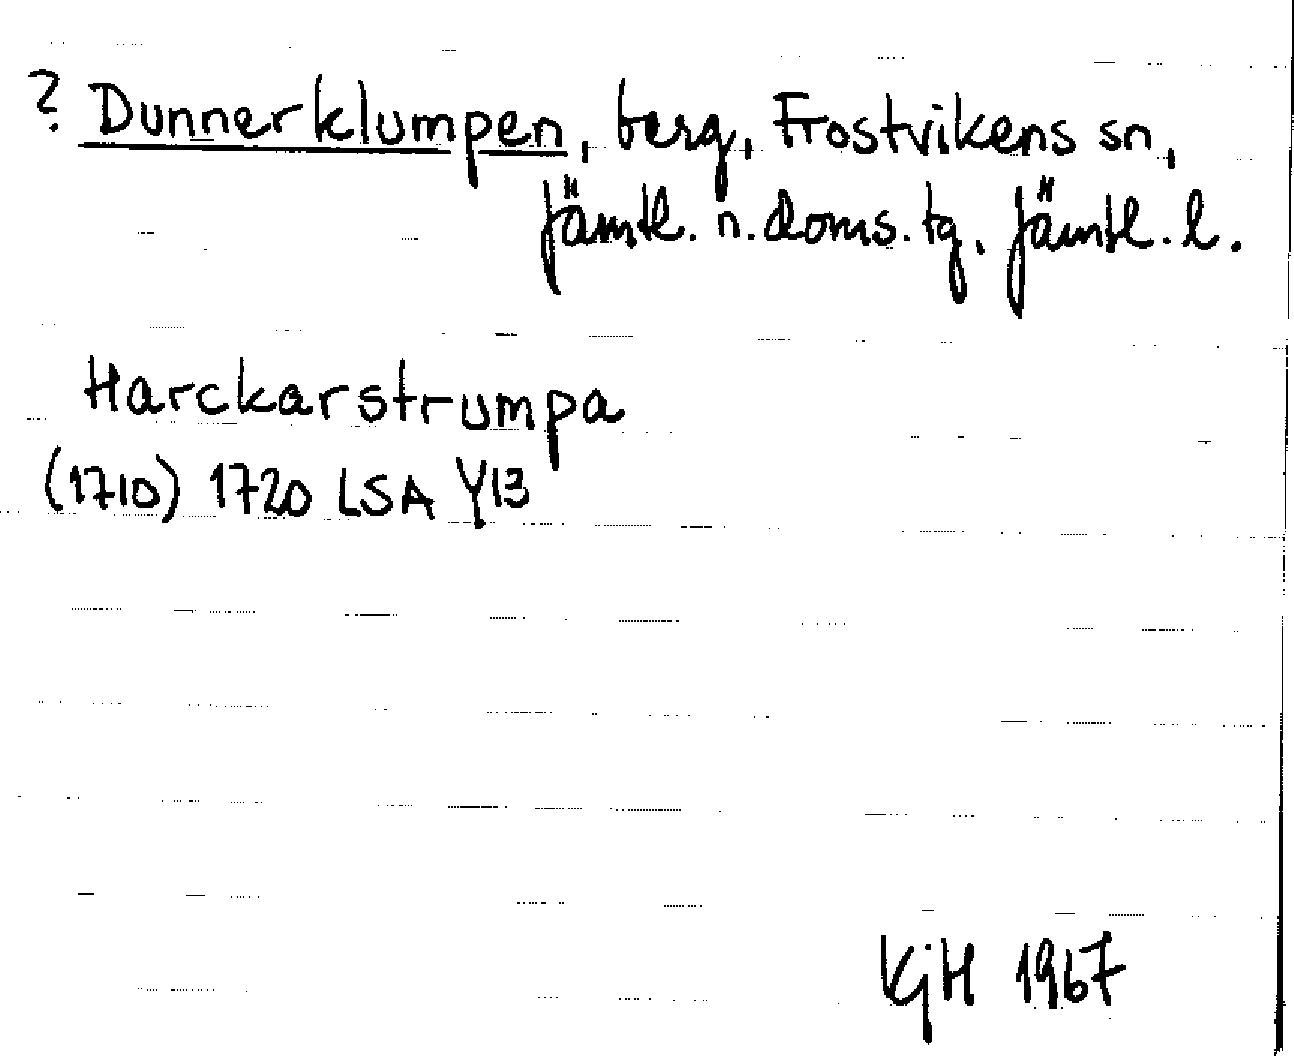 ? Dunnerklumpen, berg, Frostvikens sn,
Jämtl. n. doms. tg. Jämtl. l.
Harckarstrumpa
(1710) 1720 LSA Y13
KjH 1967